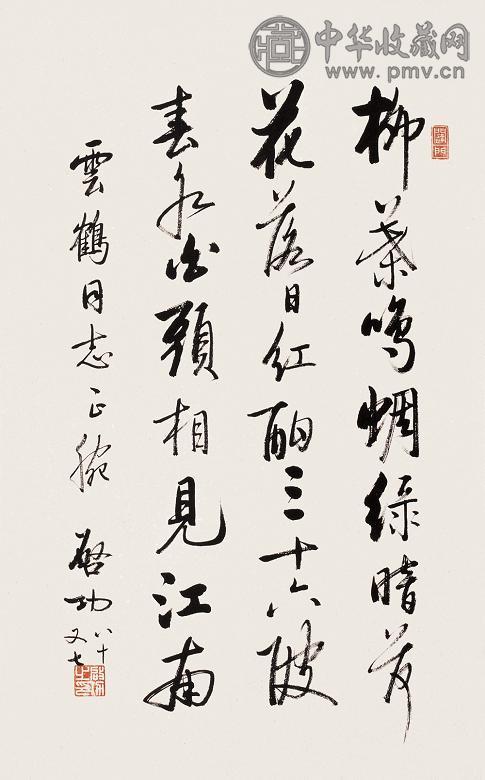 中华收藏网
www.pmv.cn
柳葉鳴蜩綠暗荷
花落日紅酣三十六陂
春水白頭相見江南
雲鶴同志正腕 啓功 八十又七